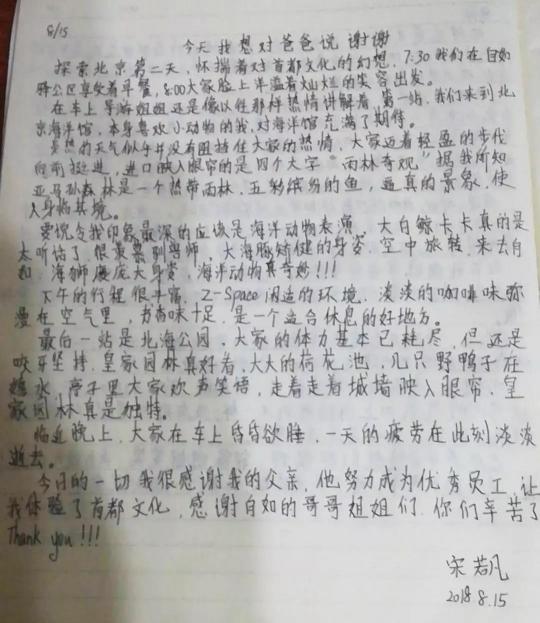 8/15
今天我想对爸爸说谢谢
探索北京第二天,怀揣着对首都文化的幻想,7:30我们在自如
公区享受着早餐,8:00大家脸上洋溢着灿烂的笑容出发。
在车上导游姐姐还是像以往那样热情讲解着,第一站,我们来到北
京海洋馆,本身喜欢小动物的我,对海洋馆充满了期待。
炎热的天气似乎并没有阻挡住大家的热情,大家迈着轻盈的步伐
向前挺进,进口映入眼帘的是四个大字“雨林奇观”据我所知
亚马孙森林是一个热带雨林,五彩缤纷的鱼,逼真的景象,使
人身临其境。
要说令我印象最深的应该是海洋动物表演,大白鲸卡卡真的是
太听话了,很崇 训导师,大海豚矫健的身姿,空中旋转,来去自
如,海狮庞大身姿,海洋动物真奇妙!!!
下午的行程很丰富,Z-Space 闲适的环境,淡淡的咖啡味弥
漫在空气里,书香味十足,是一个适合休息的好地方。
最后一站是北海公园,大家的体力基本已耗尽,但还是
咬牙坚持,皇家园林真好看,大大的荷花池,几只野鸭子在
水,亭子里大家欢声笑语,走着走着城墙映入眼帘,皇
家园林真是独特。
临近晚上,大家在车上昏昏欲睡,一天的疲劳在此刻淡淡
逝去。
今日的一切我很感谢我的父亲,他努力成为优秀员工,让
我体验了首都文化,感谢自如的哥哥姐姐们,你们辛苦了
Thank you!!!
宋若凡
2018.8.15